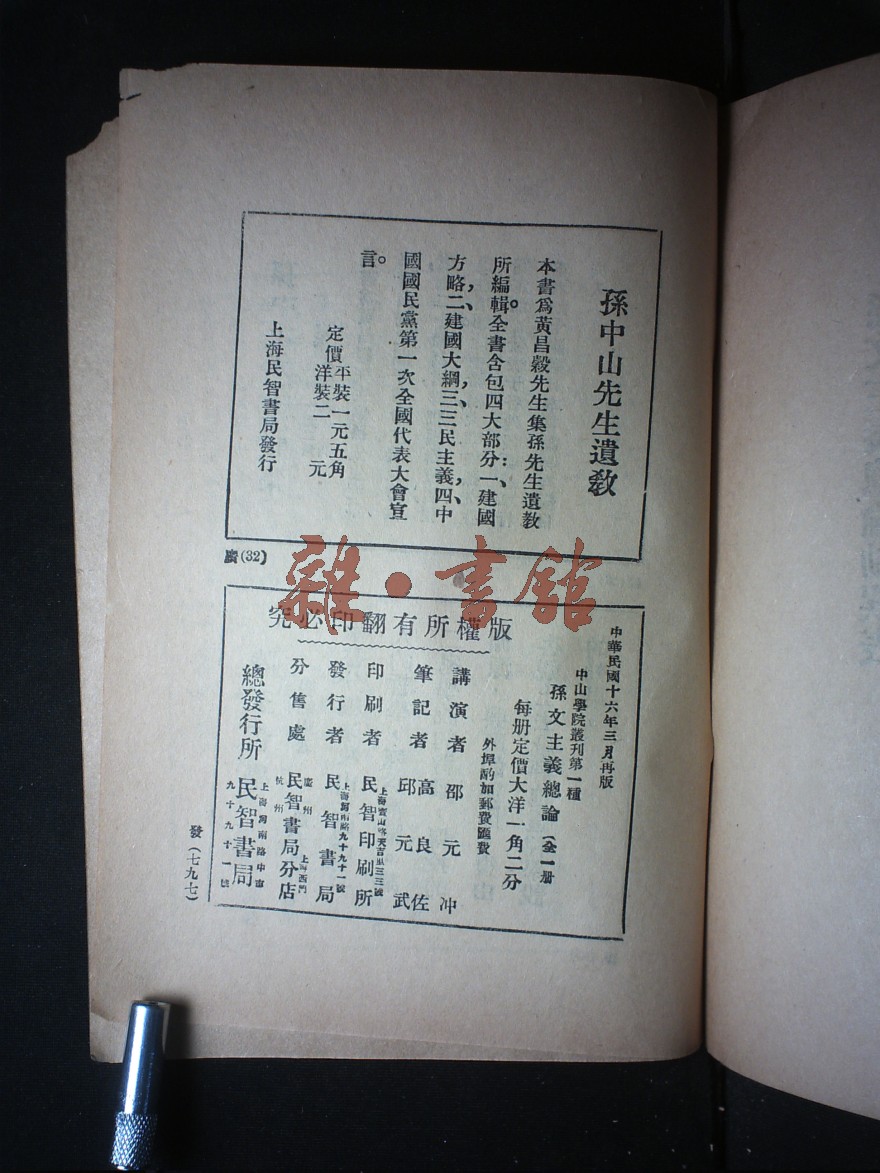 孫中山先生遺敎
本書爲黃昌穀先生集孫先生遺敎
所編輯。全書含包四大部分：一、建國
方略，二、建國大綱，三、三民主義，四、中
國國民黨第一次全國代表大會宣
言。
定價平裝一元五角
洋裝二元
上海民智書局發行
廣(32)
雜·書館
中華民國十六年三月再版
中山學院叢刊第一種
孫文主義總論(全一册)
每册定價大洋一角二分
外埠酌加郵費匯費
版權所有翻印必究
講演者 邵元冲
筆記者 高良佐
邱元武
印刷者 民智印刷所
發行者 上海河南路九十九十一號
民智書局
分售處 廣州 杭州 民智書局分店 上海西門
總發行所 上海河南路中市
民智書局
九十九十一號
發(七九七)